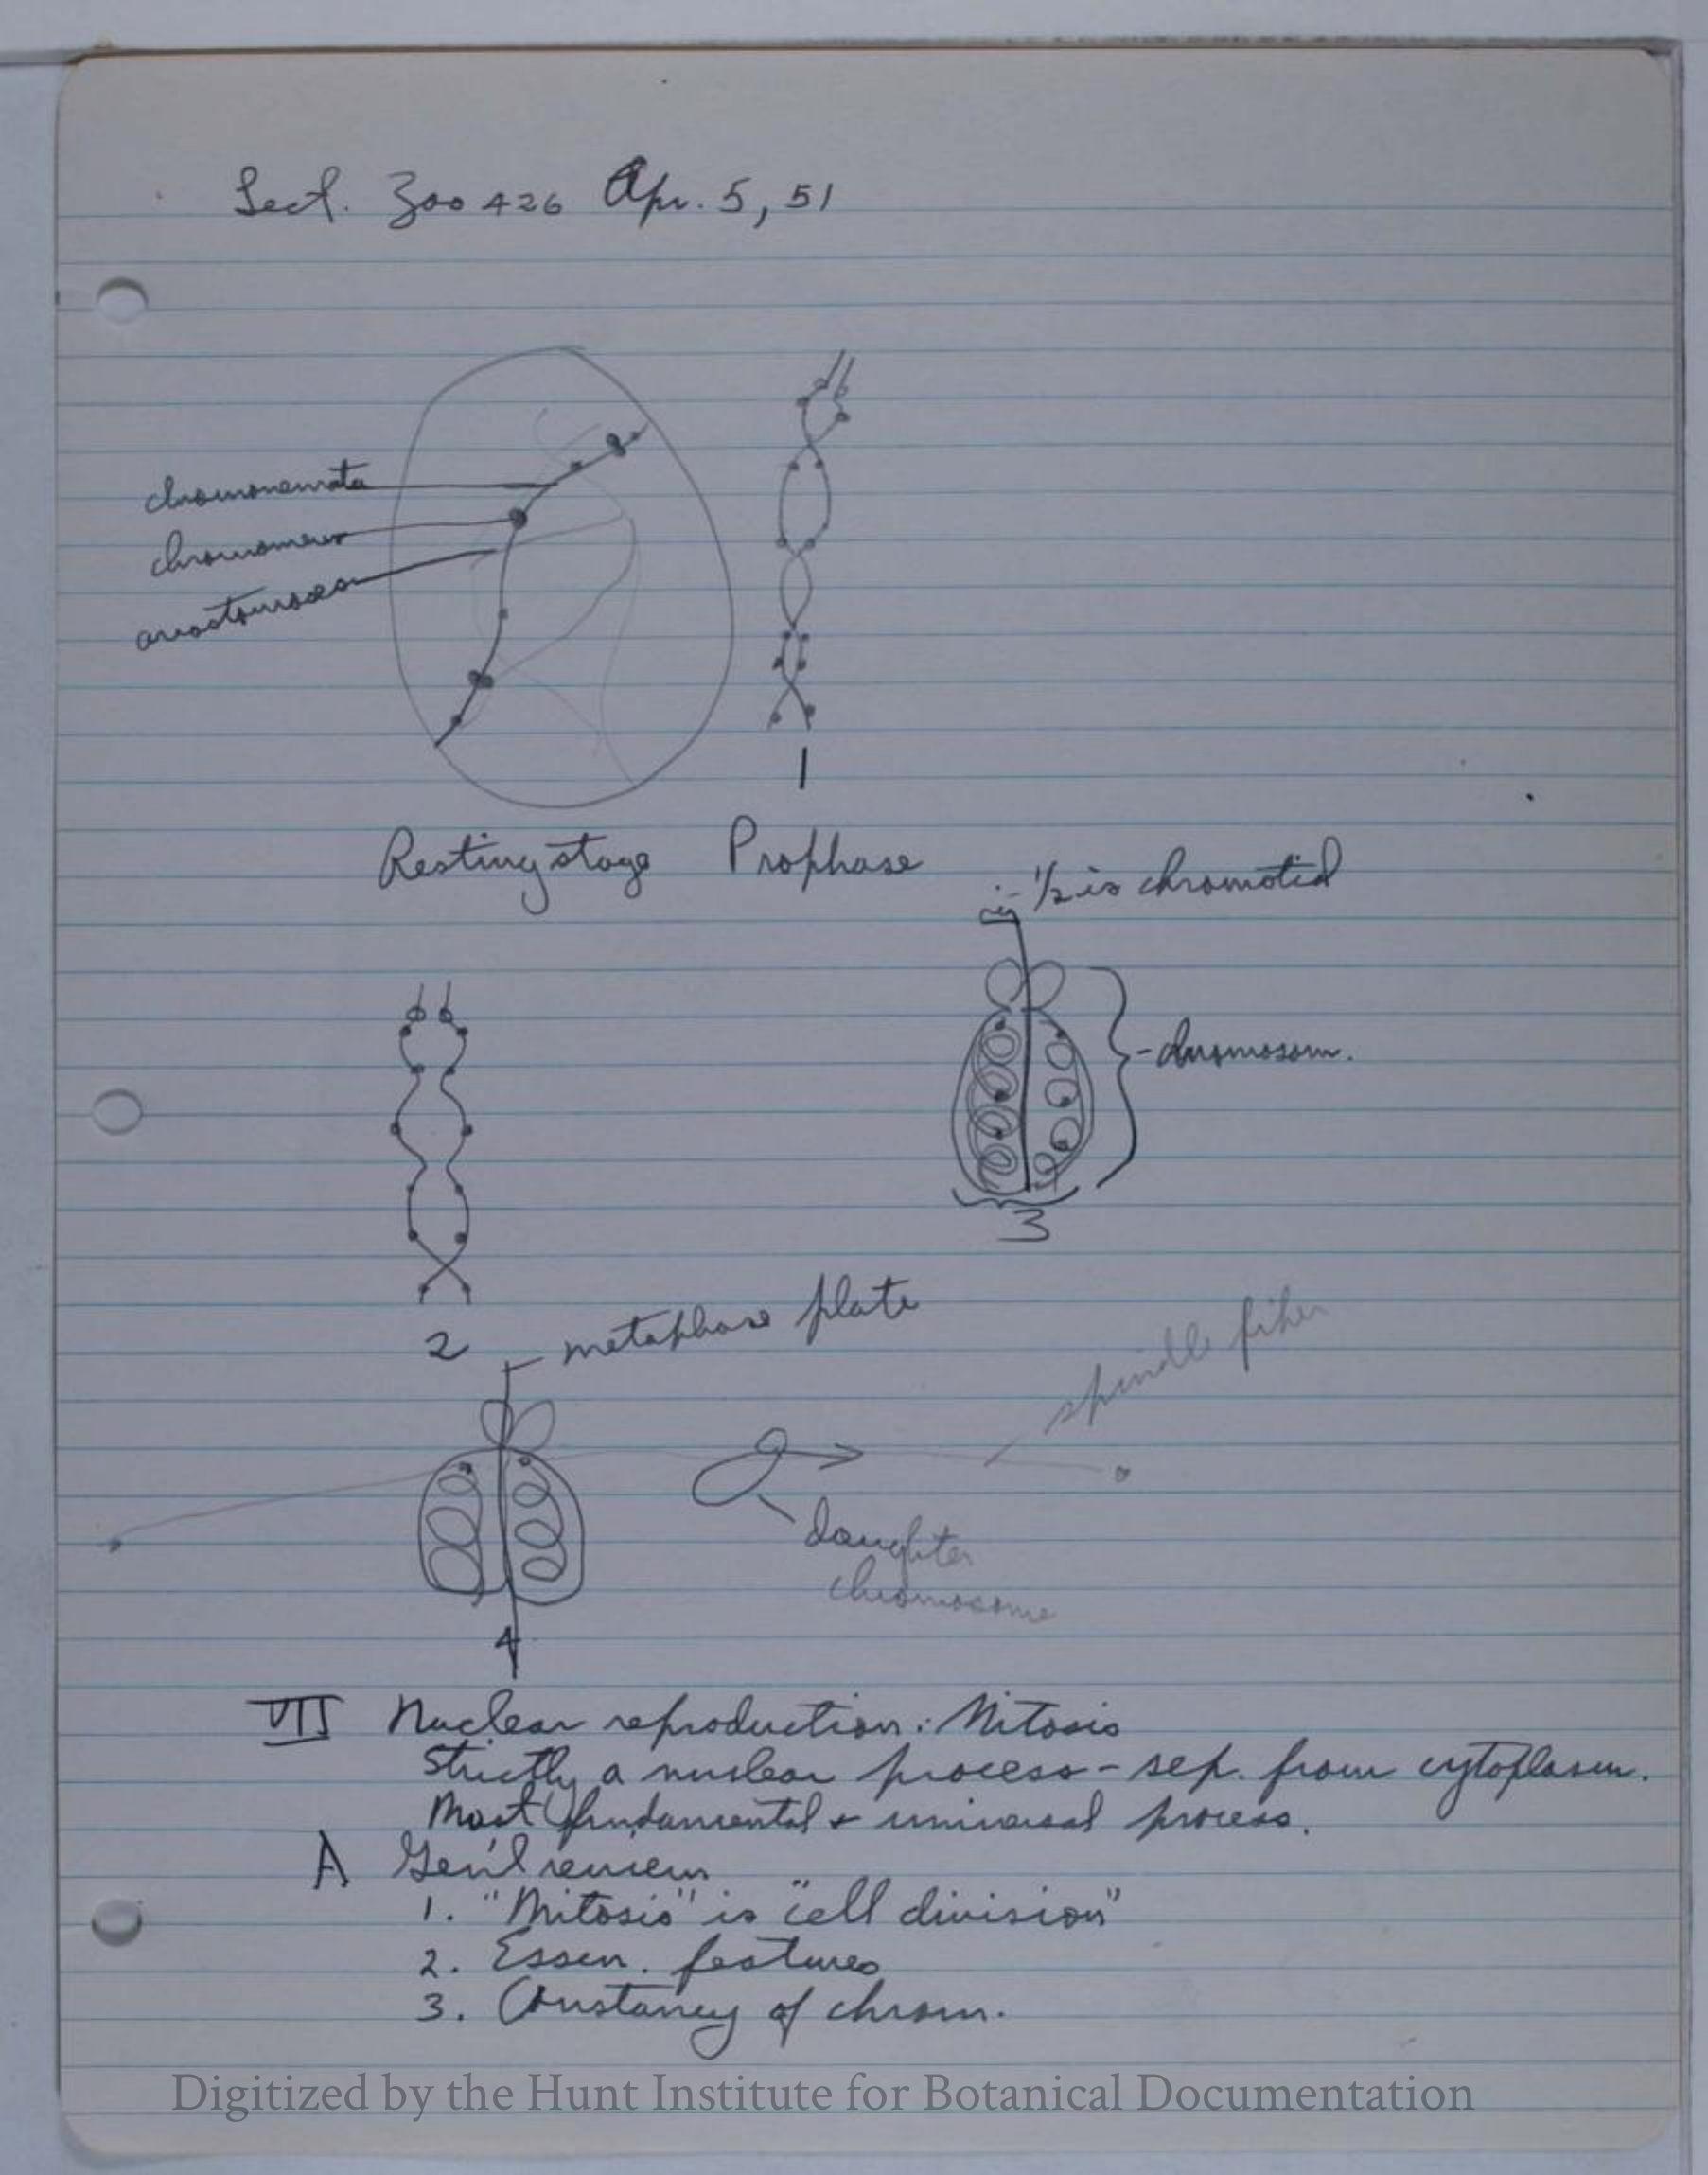 Lect. Zoo 426 Apr. 5, 51
chromonemata
chromomeres
anastomoses
1
Resting stage Prophase
- 1/2 is chromatid
- chromosom.
3
2
- metaphase plate
spindle fiber
daughter
chromosome
4
VII Nuclear reproduction: Mitosis
Strictly a nuclear process - sep. from cytoplasm.
Most fundamental & universal process.
A Gen'l review
1. "Mitosis" is "cell division"
2. Essen. features
3. Constancy of chrom.
Digitized by the Hunt Institute for Botanical Documentation